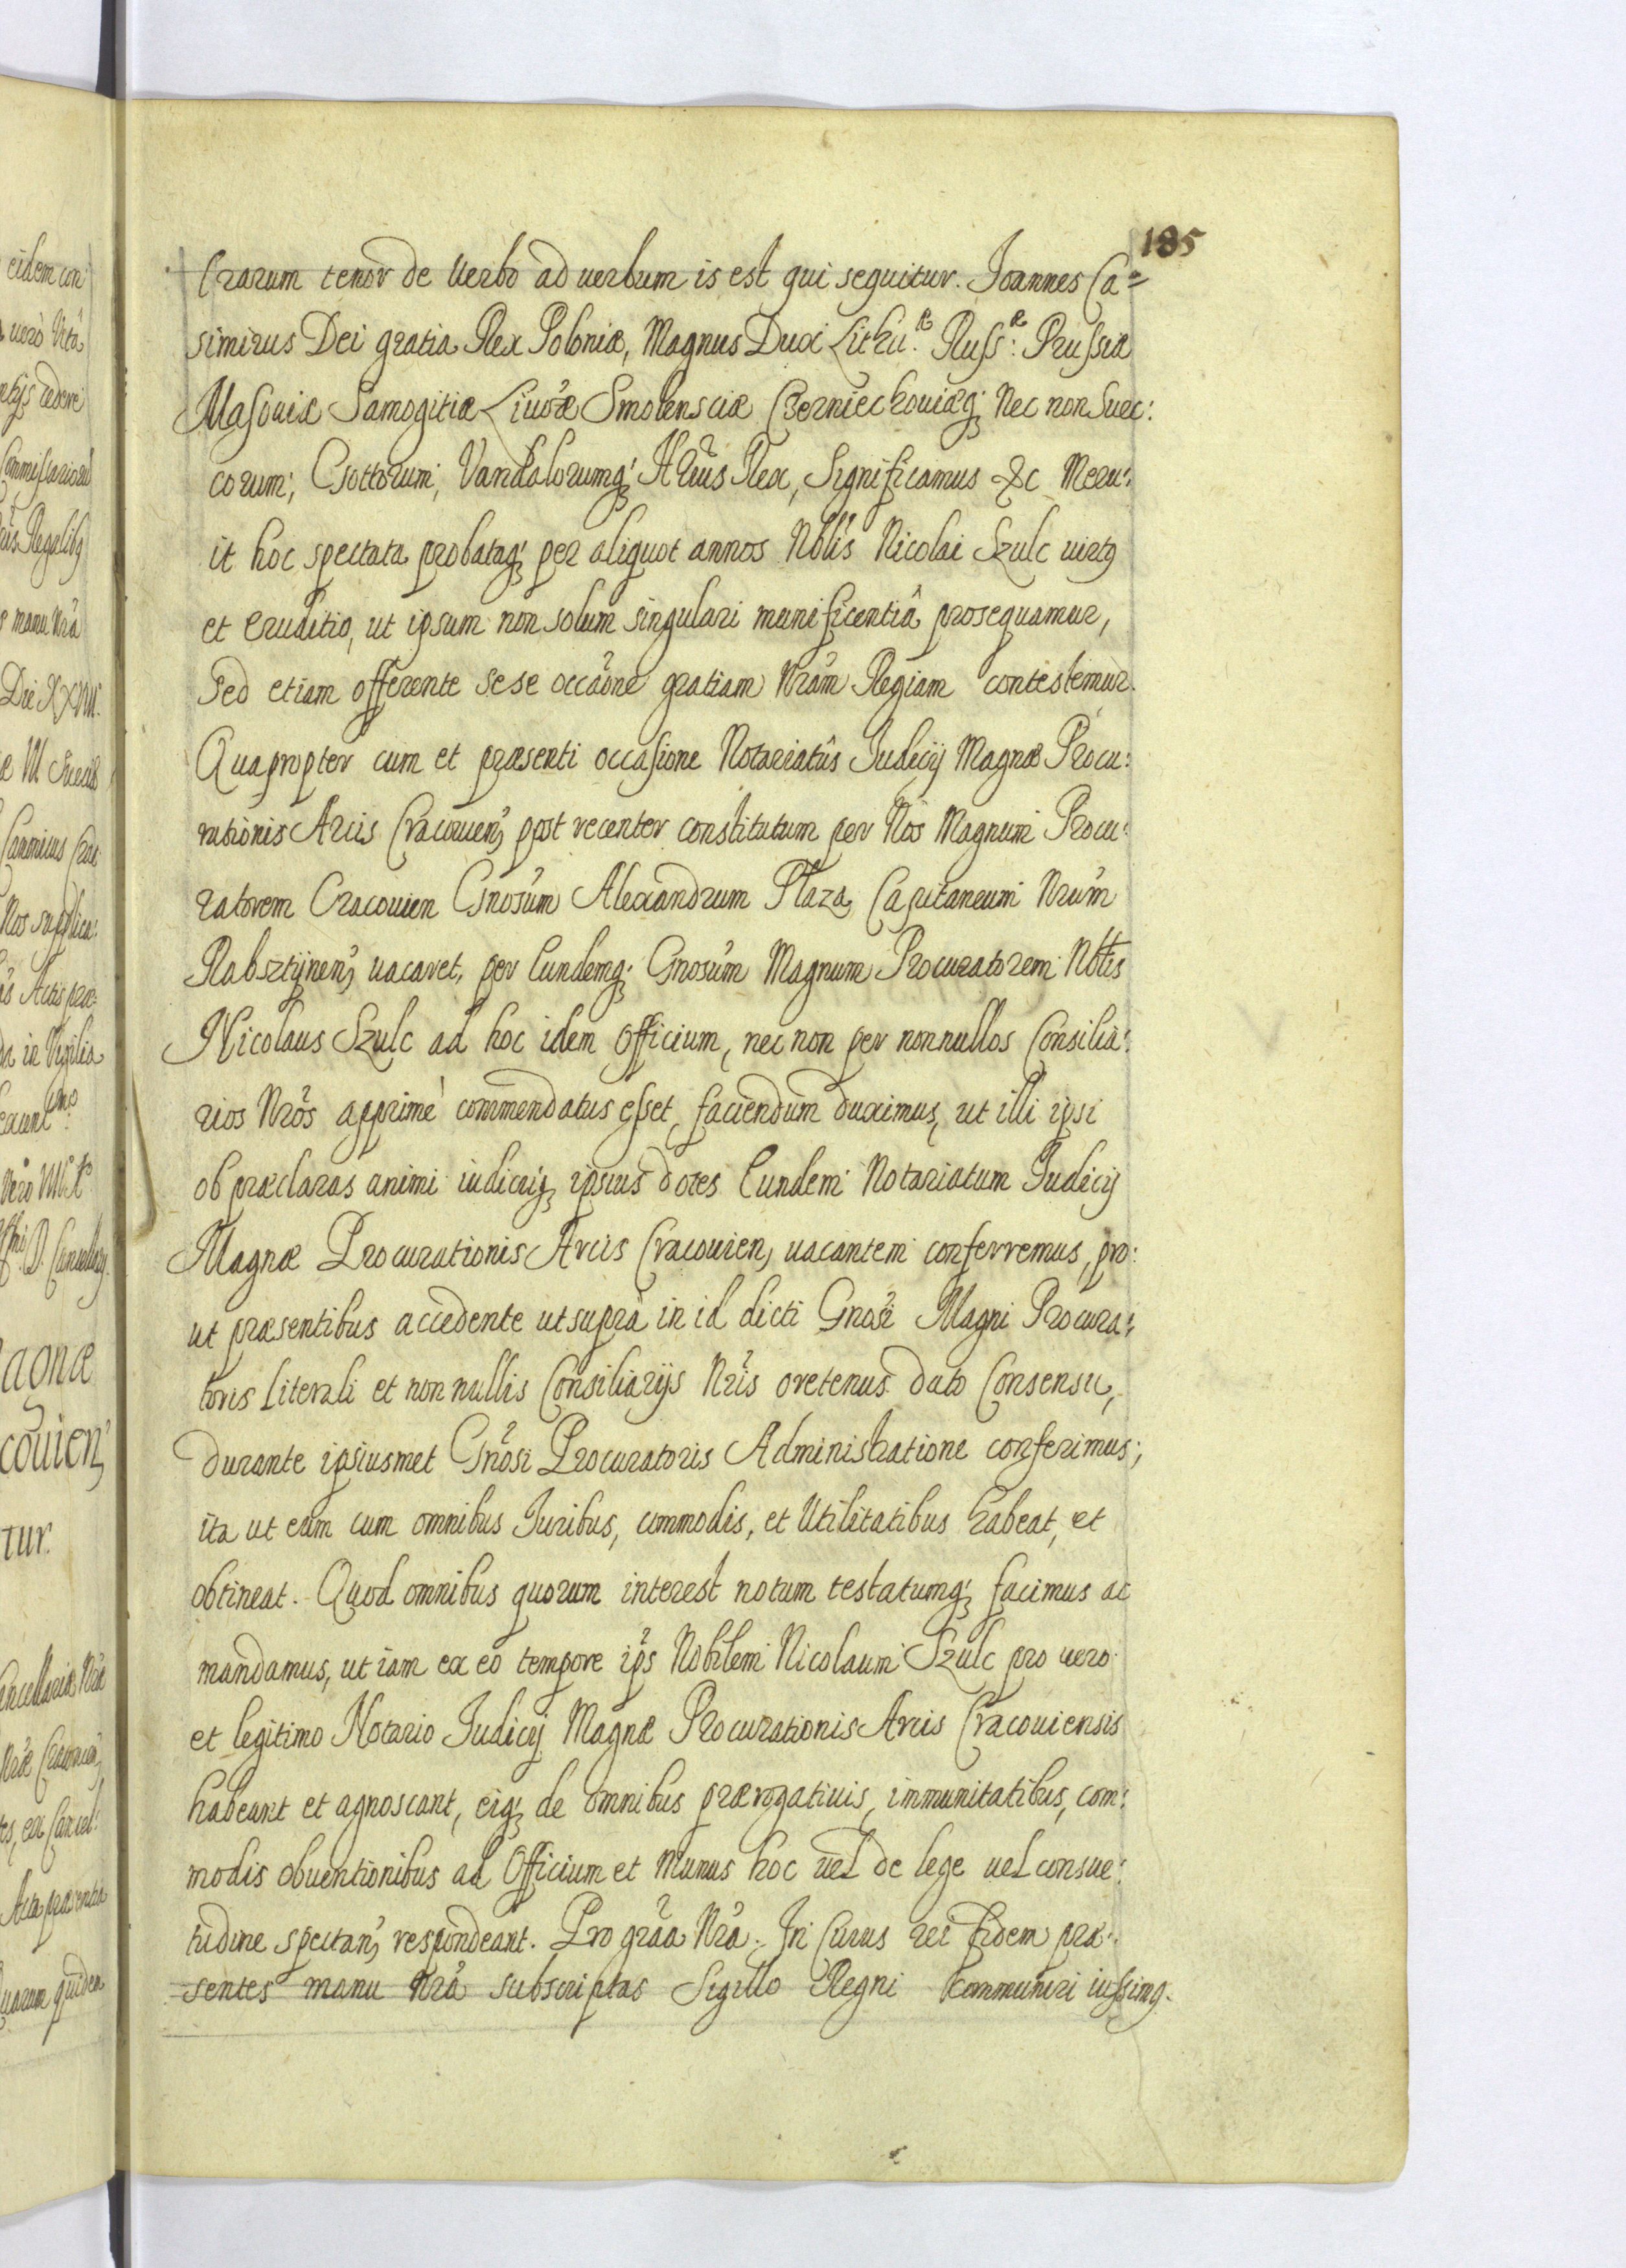 185
Lrarum tenor de Verbo ad uerbum is est qui sequitur. Joannes Ca=
simirus Dei gratia Rex Poloniæ, Magnus Dux Lithu:æ Russ:æ Prussiæ
Masouiæ Samogitiæ Liuo'æ Smolensciæ Czerniechouiæq; Nec non Suec:
corum, Gottorum, Vandalorumq; H'rius Rex, Significamus &c Meru:
it hoc spectata probataq; per aliquot annos Nblis Nicolai Szulc uirtq
et eruditio, ut ipsum non solum singulari munificentiâ prosequamur,
sed etiam offerente sese occãone gratiam Nrãm Regiam contestemur.
Quapropter cum et præsenti occasione Notariatûs Judicij Magnæ Procu:
rationis Arcis Cracouien, post recenter constitutum per Nos Magnum Procu:
ratorem Cracouien Gnosũm Alexandrum Płaza, Capitaneum Nrũm
Rabsztÿnen, uacaret, per Eundemq; Gnosũm Magnum Procuratorem Nblis
Nicolaus Szulc ad hoc idem Officium, nec non per nonnullos Consilia:
rios Nrõs apprimè commendatus esset, faciendum duximus, ut illi ipsi
ob præclaras animi iudicijq; ipsius dotes Eundem Notariatum Judicij
Magnæ Procurationis Arcis Cracouien, uacantem conferremus, pro:
ut præsentibus accedente ut supra in id dicti Gnosi Magni Procura:
toris literali et non nullis Consiliarijs Nris oretenus dato Consensu,
durante ipsiusmet Gnosi Procuratoris Administratione conferimus;
ita ut eum cum omnibus Juribus, commodis, et Utilitatibus habeat, et
obtineat. Quod omnibus quorum interest notum testatumq; facimus ac
mandamus, ut iam ex eo tempore ips Nobilem Nicolaum Szulc pro uero
et legitimo Notario Judicij Magnæ Procurationis Arcis Cracouiensis
habeant et agnoscant, eiq; de omnibus prærogatiuis, immunitatibus, com:
modis obuentionibus ad Officium et Munus hoc uel de lege uel consue:
tudine spectan, respondeant. Pro grãa Nrã. In Cuius rei fidem præ:
sentes manu Nrã subscriptas Sigillo Regni communiri iussimq.